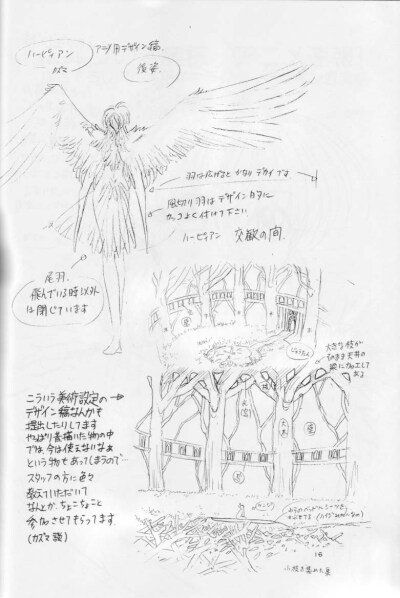 ハーピィアン
アニメ用デザイン稿.
後姿
羽は広げるとかなりデカイです
風切り羽はデザインカタに
カッコよく付けて下さい
ハーピィアン 交歓の間.
尾羽.
飛んでいる時以外
は閉じています
大きな枝が
そのまま天井の
梁に加工して
あるよ
こういう美術設定の→
デザイン稿なんかも
提出したりしてます
やっぱり昔描いた物の中
では、今は使えないなぁ
という物もあってしまうので…
スタッフの方に色々
教えていただいて
なんとか、ちょこちょこと
参加させてもらってます.
(カズマ談)
16
小枝を集めた巣